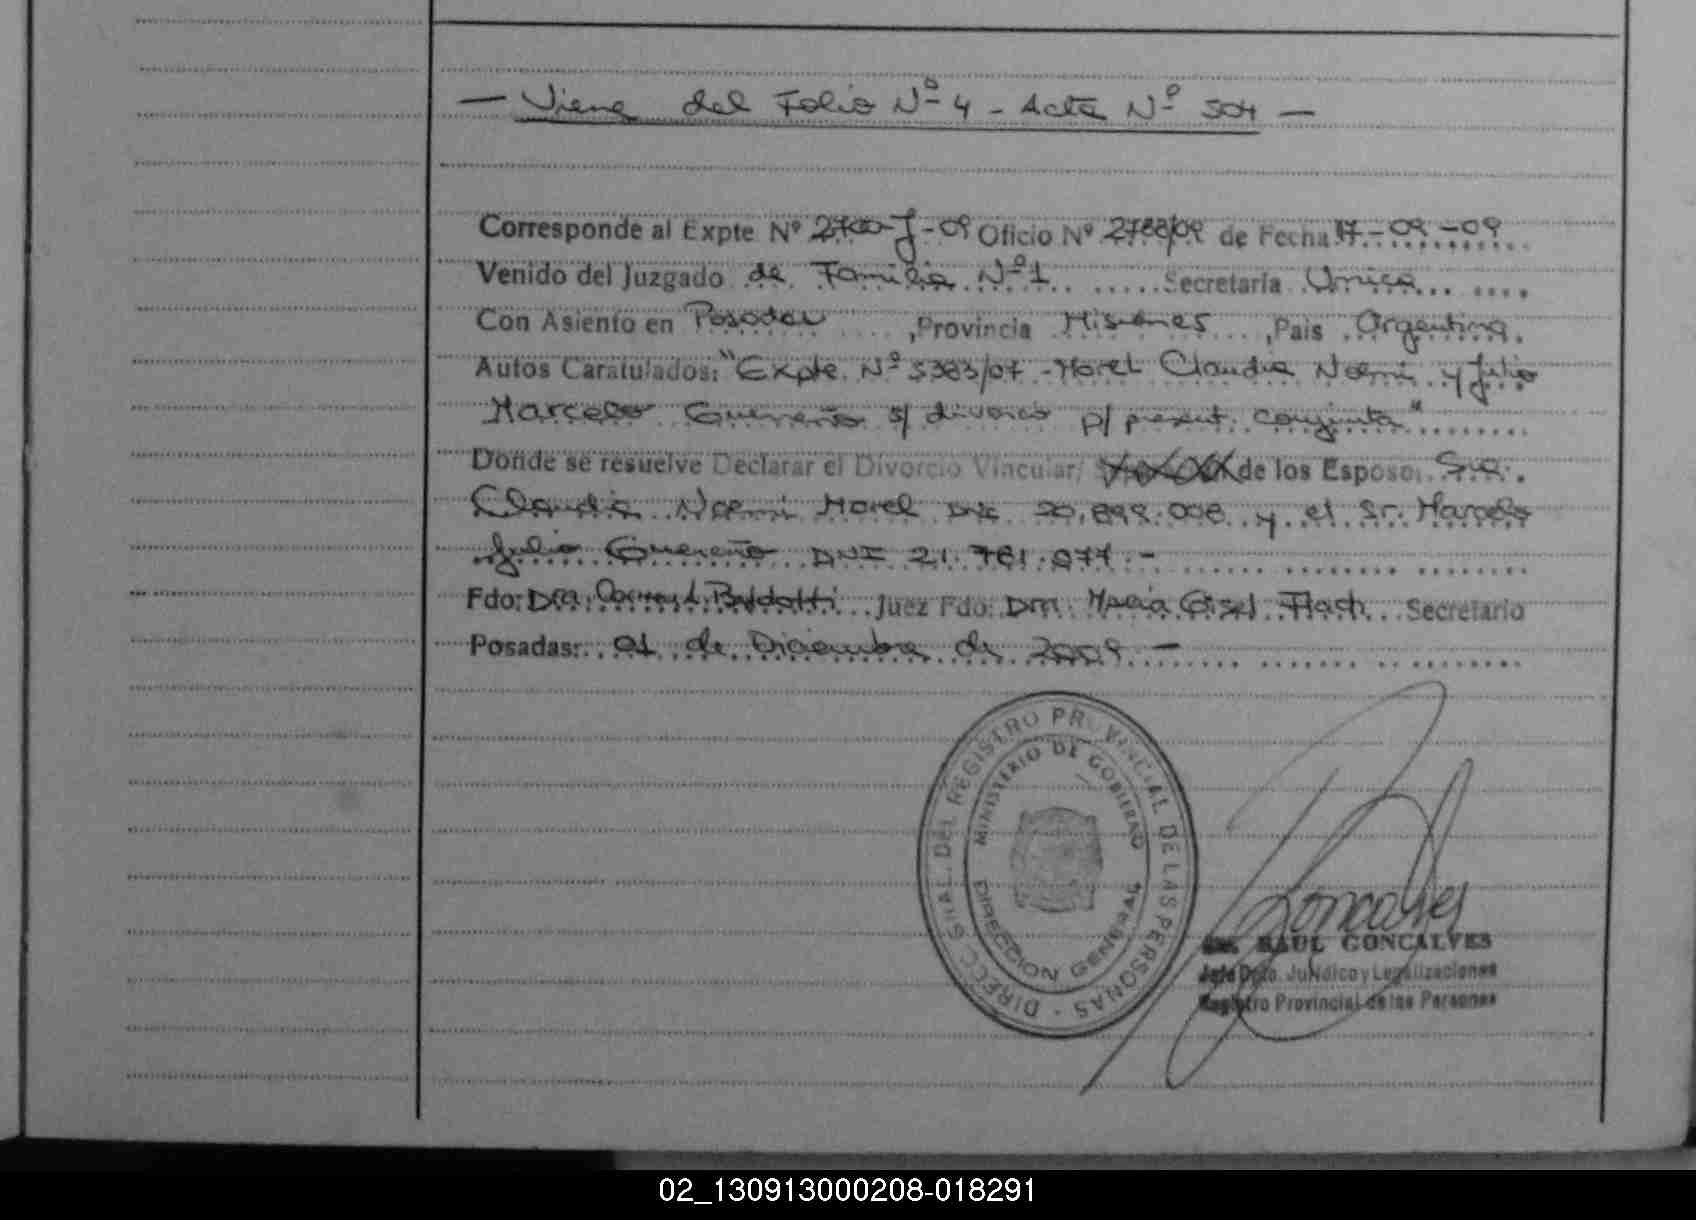 — Viene del Folio Nº 4 - Acta Nº 504 —
Corresponde al Expte Nº 2700-J-09 Oficio Nº 2788/09 de Fecha 17-09-09
Venido del Juzgado de Familia Nº 1 Secretaría Única
Con Asiento en Posadas, Provincia Misiones, País Argentina.
Autos Caratulados: "Expte. Nº 5383/07 - Morel Claudia Noemi y Julio
Marcelo Guereño s/ divorcio p/ present. conjunta"
Donde se resuelve Declarar el Divorcio Vincular/ de los Esposo: Sra.
Claudia Noemi Morel DNI 20.899.008 y el Sr. Marcelo
Julio Guereño DNI 21.781.077.-
Fdo: Dra. Juez Fdo: Dra. María Gisel Flach Secretario
Posadas: 01 de Diciembre de 2009.-
DIREC. GRAL. DEL REGISTRO PROVINCIAL DE LAS PERSONAS -
MINISTERIO DE GOBIERNO
DIRECCION GENERAL
Goncalves
RAUL GONCALVES
Jefe Dpto. Jurídico y Legalizaciones
Registro Provincial de las Personas
02_130913000208-018291